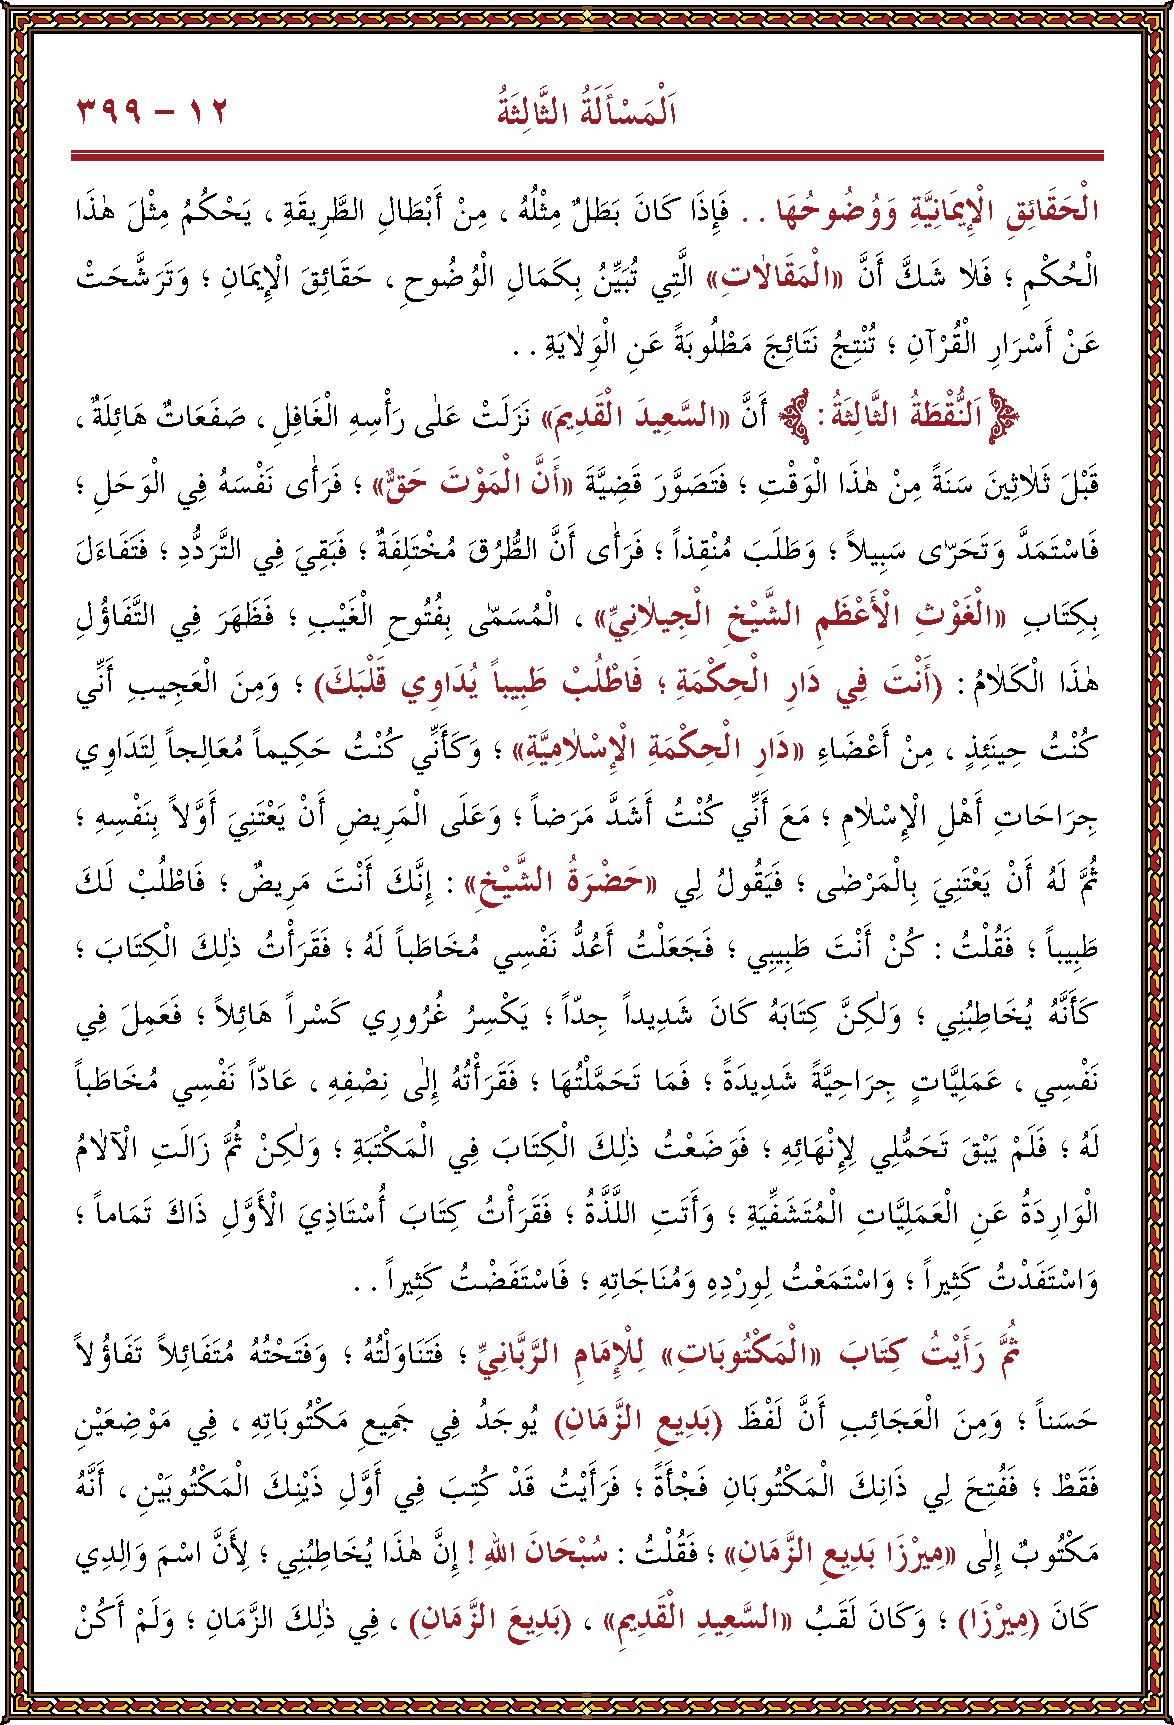 اَلْمَسْأَلَةُ الثَّالِثَةُ ١٢ - ٣٩٩
الْحَقَائِقِ الْإِيمَانِيَّةِ وَوُضُوحُهَا . . فَإِذَا كَانَ بَطَلٌ مِثْلُهُ ، مِنْ أَبْطَالِ الطَّرِيقَةِ ، يَحْكُمُ مِثْلَ هٰذَا
الْحُكْمِ ؛ فَلاٰ شَكَّ أَنَّ «الْمَقَالاٰتِ» الَّتِي تُبَيِّنُ بِكَمَالِ الْوُضُوحِ ، حَقَائِقَ الْإِيمَانِ ؛ وَتَرَشَّحَتْ
عَنْ أَسْرَارِ الْقُرْآنِ ؛ تُنْتِجُ نَتَائِجَ مَطْلُوبَةً عَنِ الْوِلاٰيَةِ . .
اَلنُّقْطَةُ الثَّالِثَةُ : أَنَّ «السَّعِيدَ الْقَدِيمَ» نَزَلَتْ عَلٰى رَأْسِهِ الْغَافِلِ ، صَفَعَاتٌ هَائِلَةٌ ،
قَبْلَ ثَلاٰثِينَ سَنَةً مِنْ هٰذَا الْوَقْتِ ؛ فَتَصَوَّرَ قَضِيَّةَ «أَنَّ الْمَوْتَ حَقٌّ» ؛ فَرَأٰى نَفْسَهُ فِي الْوَحَلِ ؛
فَاسْتَمَدَّ وَتَحَرّٰى سَبِيلاً ؛ وَطَلَبَ مُنْقِذاً ؛ فَرَأٰى أَنَّ الطُّرُقَ مُخْتَلِفَةٌ ؛ فَبَقِيَ فِي التَّرَدُّدِ ؛ فَتَفَاءَلَ
بِكِتَابِ «الْغَوْثِ الْأَعْظَمِ الشَّيْخِ الْجِيلاٰنِيِّ» ، الْمُسَمّٰى بِفُتُوحِ الْغَيْبِ ؛ فَظَهَرَ فِي التَّفَاؤُلِ
هٰذَا الْكَلاٰمُ : (أَنْتَ فِي دَارِ الْحِكْمَةِ ؛ فَاطْلُبْ طَبِيباً يُدَاوِي قَلْبَكَ) ؛ وَمِنَ الْعَجِيبِ أَنِّي
كُنْتُ حِينَئِذٍ ، مِنْ أَعْضَاءِ «دَارِ الْحِكْمَةِ الْإِسْلاٰمِيَّةِ» ؛ وَكَأَنِّي كُنْتُ حَكِيماً مُعَالِجاً لِتَدَاوِي
جِرَاحَاتِ أَهْلِ الْإِسْلاٰمِ ؛ مَعَ أَنِّي كُنْتُ أَشَدَّ مَرَضاً ؛ وَعَلَى الْمَرِيضِ أَنْ يَعْتَنِيَ أَوَّلاً بِنَفْسِهِ ؛
ثُمَّ لَهُ أَنْ يَعْتَنِيَ بِالْمَرْضٰى ؛ فَيَقُولُ لِي «حَضْرَةُ الشَّيْخِ» : إِنَّكَ أَنْتَ مَرِيضٌ ؛ فَاطْلُبْ لَكَ
طَبِيباً ؛ فَقُلْتُ : كُنْ أَنْتَ طَبِيبِي ؛ فَجَعَلْتُ أَعُدُّ نَفْسِي مُخَاطَباً لَهُ ؛ فَقَرَأْتُ ذٰلِكَ الْكِتَابَ ؛
كَأَنَّهُ يُخَاطِبُنِي ؛ وَلٰكِنَّ كِتَابَهُ كَانَ شَدِيداً جِدّاً ؛ يَكْسِرُ غُرُورِي كَسْراً هَائِلاً ؛ فَعَمِلَ فِي
نَفْسِي ، عَمَلِيَّاتٍ جِرَاحِيَّةً شَدِيدَةً ؛ فَمَا تَحَمَّلْتُهَا ؛ فَقَرَأْتُهُ إِلٰى نِصْفِهِ ، عَادّاً نَفْسِي مُخَاطَباً
لَهُ ؛ فَلَمْ يَبْقَ تَحَمُّلِي لِإِنْهَائِهِ ؛ فَوَضَعْتُ ذٰلِكَ الْكِتَابَ فِي الْمَكْتَبَةِ ؛ وَلٰكِنْ ثُمَّ زَالَتِ الْآلاٰمُ
الْوَارِدَةُ عَنِ الْعَمَلِيَّاتِ الْمُتَشَفِّيَةِ ؛ وَأَتَتِ اللَّذَّةُ ؛ فَقَرَأْتُ كِتَابَ أُسْتَاذِيَ الْأَوَّلِ ذَاكَ تَمَاماً ؛
وَاسْتَفَدْتُ كَثِيراً ؛ وَاسْتَمَعْتُ لِوِرْدِهِ وَمُنَاجَاتِهِ ؛ فَاسْتَفَضْتُ كَثِيراً . .
ثُمَّ رَأَيْتُ كِتَابَ «الْمَكْتُوبَاتِ» لِلْإِمَامِ الرَّبَّانِيِّ ؛ فَتَنَاوَلْتُهُ ؛ وَفَتَحْتُهُ مُتَفَائِلاً تَفَاؤُلاً
حَسَناً ؛ وَمِنَ الْعَجَائِبِ أَنَّ لَفْظَ (بَدِيعِ الزَّمَانِ) يُوجَدُ فِي جَمِيعِ مَكْتُوبَاتِهِ ، فِي مَوْضِعَيْنِ
فَقَطْ ؛ فَفُتِحَ لِي ذَانِكَ الْمَكْتُوبَانِ فَجْأَةً ؛ فَرَأَيْتُ قَدْ كُتِبَ فِي أَوَّلِ ذَيْنِكَ الْمَكْتُوبَيْنِ ، أَنَّهُ
مَكْتُوبٌ إِلٰى «مِيرْزَا بَدِيعِ الزَّمَانِ» ؛ فَقُلْتُ : سُبْحَانَ اللهِ ! إِنَّ هٰذَا يُخَاطِبُنِي ؛ لِأَنَّ اسْمَ وَالِدِي
كَانَ (مِيرْزَا) ؛ وَكَانَ لَقَبُ «السَّعِيدِ الْقَدِيمِ» ، (بَدِيعَ الزَّمَانِ) ، فِي ذٰلِكَ الزَّمَانِ ؛ وَلَمْ أَكُنْ